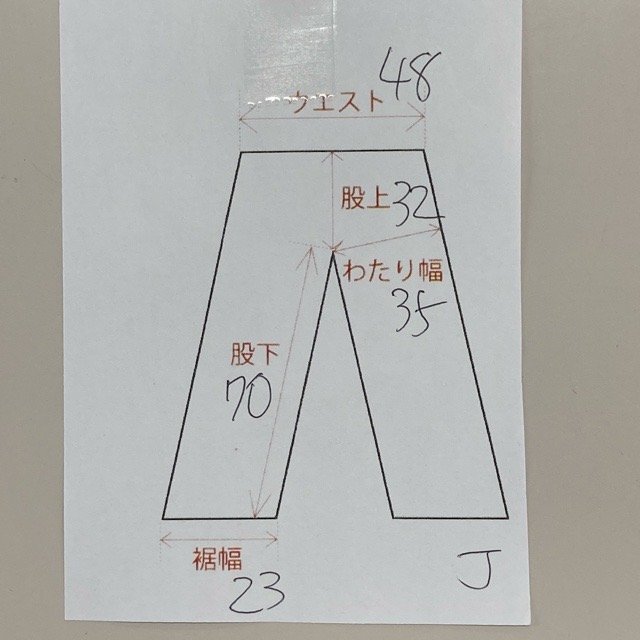 48
ウエスト
股上 32
わたり幅
35
股下
70
裾幅
23
J